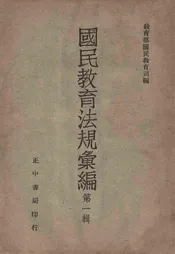 教育部國民教育司編
國民教育法規彙編
第一輯
正中書局印行